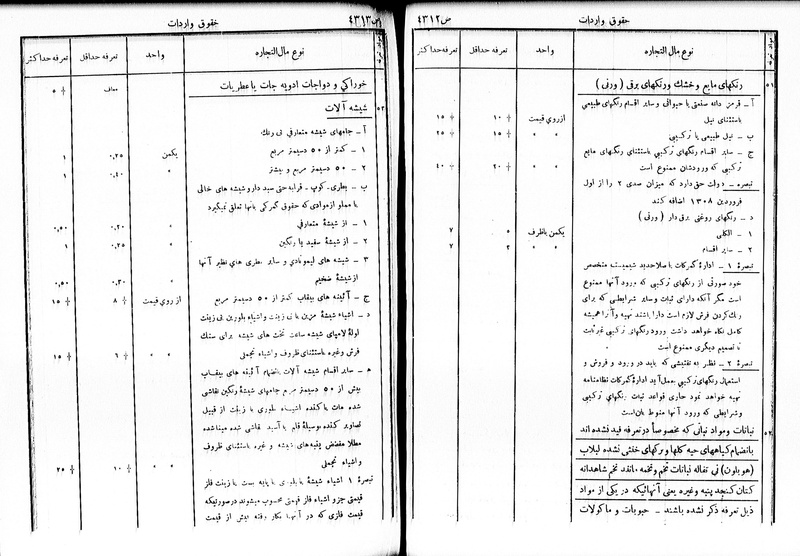 ص ۴۳۱۲
حقوق واردات
نوع مال‌التجاره
واحد
تعرفه حداقل
تعرفه حداکثر
۵۱
رنگهای مایع و خشك و رنگهای برقی ( ورنی )
آ – قرمز دانه صنعتی یا حیوانی و سایر اقسام رنگهای طبیعی
باستثنای نیل
از روی قیمت
۱۰ %
۱۵ %
ب – نیل طبیعی یا ترکیبی
» »
۱۵ %
۲۵ %
ج – سایر اقسام رنگهای ترکیبی باستثنای رنگهای مایع
ترکیبی که ورودشان ممنوع است
» »
۲۰ %
۴۰ %
تبصره – دولت حق دارد که میزان صدی ۲ را از اول
فروردین ۱۳۰۸ اضافه کند
د – رنگهای روغنی برق دار ( ورنی )
۱ – الکلی
یکمن باظرف
۵
۷
۲ – سایر اقسام
» »
۲
۷
تبصرۀ ۱ – ادارۀ گمرکات با صلاحدید شیمیست متخصص
خود صورتی از رنگهای ترکیبی که ورود آنها ممنوع
است مگر آنکه دارای ثبات و سایر شرایطی که برای
رنك‌کردن فرش لازم است دارا باشند تهیه و آنرا همیشه
کامل نگاه خواهد داشت ورود رنگهای ترکیبی غیرثابت
تا تصمیم دیگری ممنوع است
تبصرۀ ۲ – نظر به تفتیشی که باید در ورود و فروش و
استعمال رنگهای ترکیبی بعمل آید ادارۀ گمرکات نظامنامه
تهیه خواهد نمود حاری قواعد ثبات رنگهای ترکیبی
و شرایطی که ورود آنها منوط بآن است
۵۲
نباتات و مواد نباتی که مخصوصاً در تعرفه قید نشده اند
بانضمام گیاههای حبه گلها و برگهای خفتی نشده لبلاب
(هوبلون) نی تفاله نباتات تخم و تخمه مانند تخم شاهدانه
کتان کنجد پنبه و غیره یعنی آنهائیکه در یکی از مواد
ذیل تعرفه ذکر نشده باشند – حبوبات و ماکولات
ص ۴۳۱۳
حقوق واردات
نوع مال‌التجاره
واحد
تعرفه حداقل
تعرفه حداکثر
خوراکی و دواجات ادویه جات یا عطریات
معاف
۵ %
۵۳
شیشه آلات
آ – جامهای شیشه متعارفی بی رنگ
۱ – کمتر از ۵۰ دسیمتر مربع
یکمن
۰,۲۵
۱
۲ – ۵۰ دسیمتر مربع و بیشتر
»
۰,۴۰
۱
ب – بطری - کوپ - قرابه حتی سبد دار و شیشه های خالی
یا مملو از موادی که حقوق گمرکی بآنها تعلق نمیگیرد
۱ – از شیشۀ متعارفی
»
۰,۲۰
۰,۵۰
۲ – از شیشۀ سفید یا رنگین
»
۰,۲۵
۱
۳ – شیشه های لیمونادی و سایر بطری های نظیر آنها
از شیشۀ ضخیم
»
۰,۳۰
۰,۵۰
ج – آئینه های بیقاب کمتر از ۵۰ دسیمتر مربع
از روی قیمت
۸ %
۱۵ %
د – اشیاء شیشۀ مزین یا بی زینت و اشیاء بلورین بی زینت
لولۀ لامپهای شیشه ساعت تخت های شیشه برای سنك
فرش و غیره باستثنای ظروف و اشیاء تجملی
» »
۶ %
۱۵ %
ه – سایر اقسام شیشه آلات بانضمام آئینه های بیقاب
بیش از ۵۰ دسیمتر مربع جامهای شیشۀ رنگین نقاشی
شده مات یا کنده اشیاء بلوری با زینت از قبیل
تصاویر کنده بوسیلۀ قلم یا اسید نقاشی شده مینا شده
مطلا مفضض پنبه‌های شیشه و غیره باستثنای ظروف
و اشیاء تجملی
» »
۱۰ %
۲۵ %
تبصرۀ ۱ اشیاء شیشۀ یا بلوری با پایه بست یا زینت فلز
قیمتی جزو اشیاء فلز قیمتی محسوب میشوند در صورتیکه
قیمت فلزی که در آنها بکار رفته بیش از قیمت